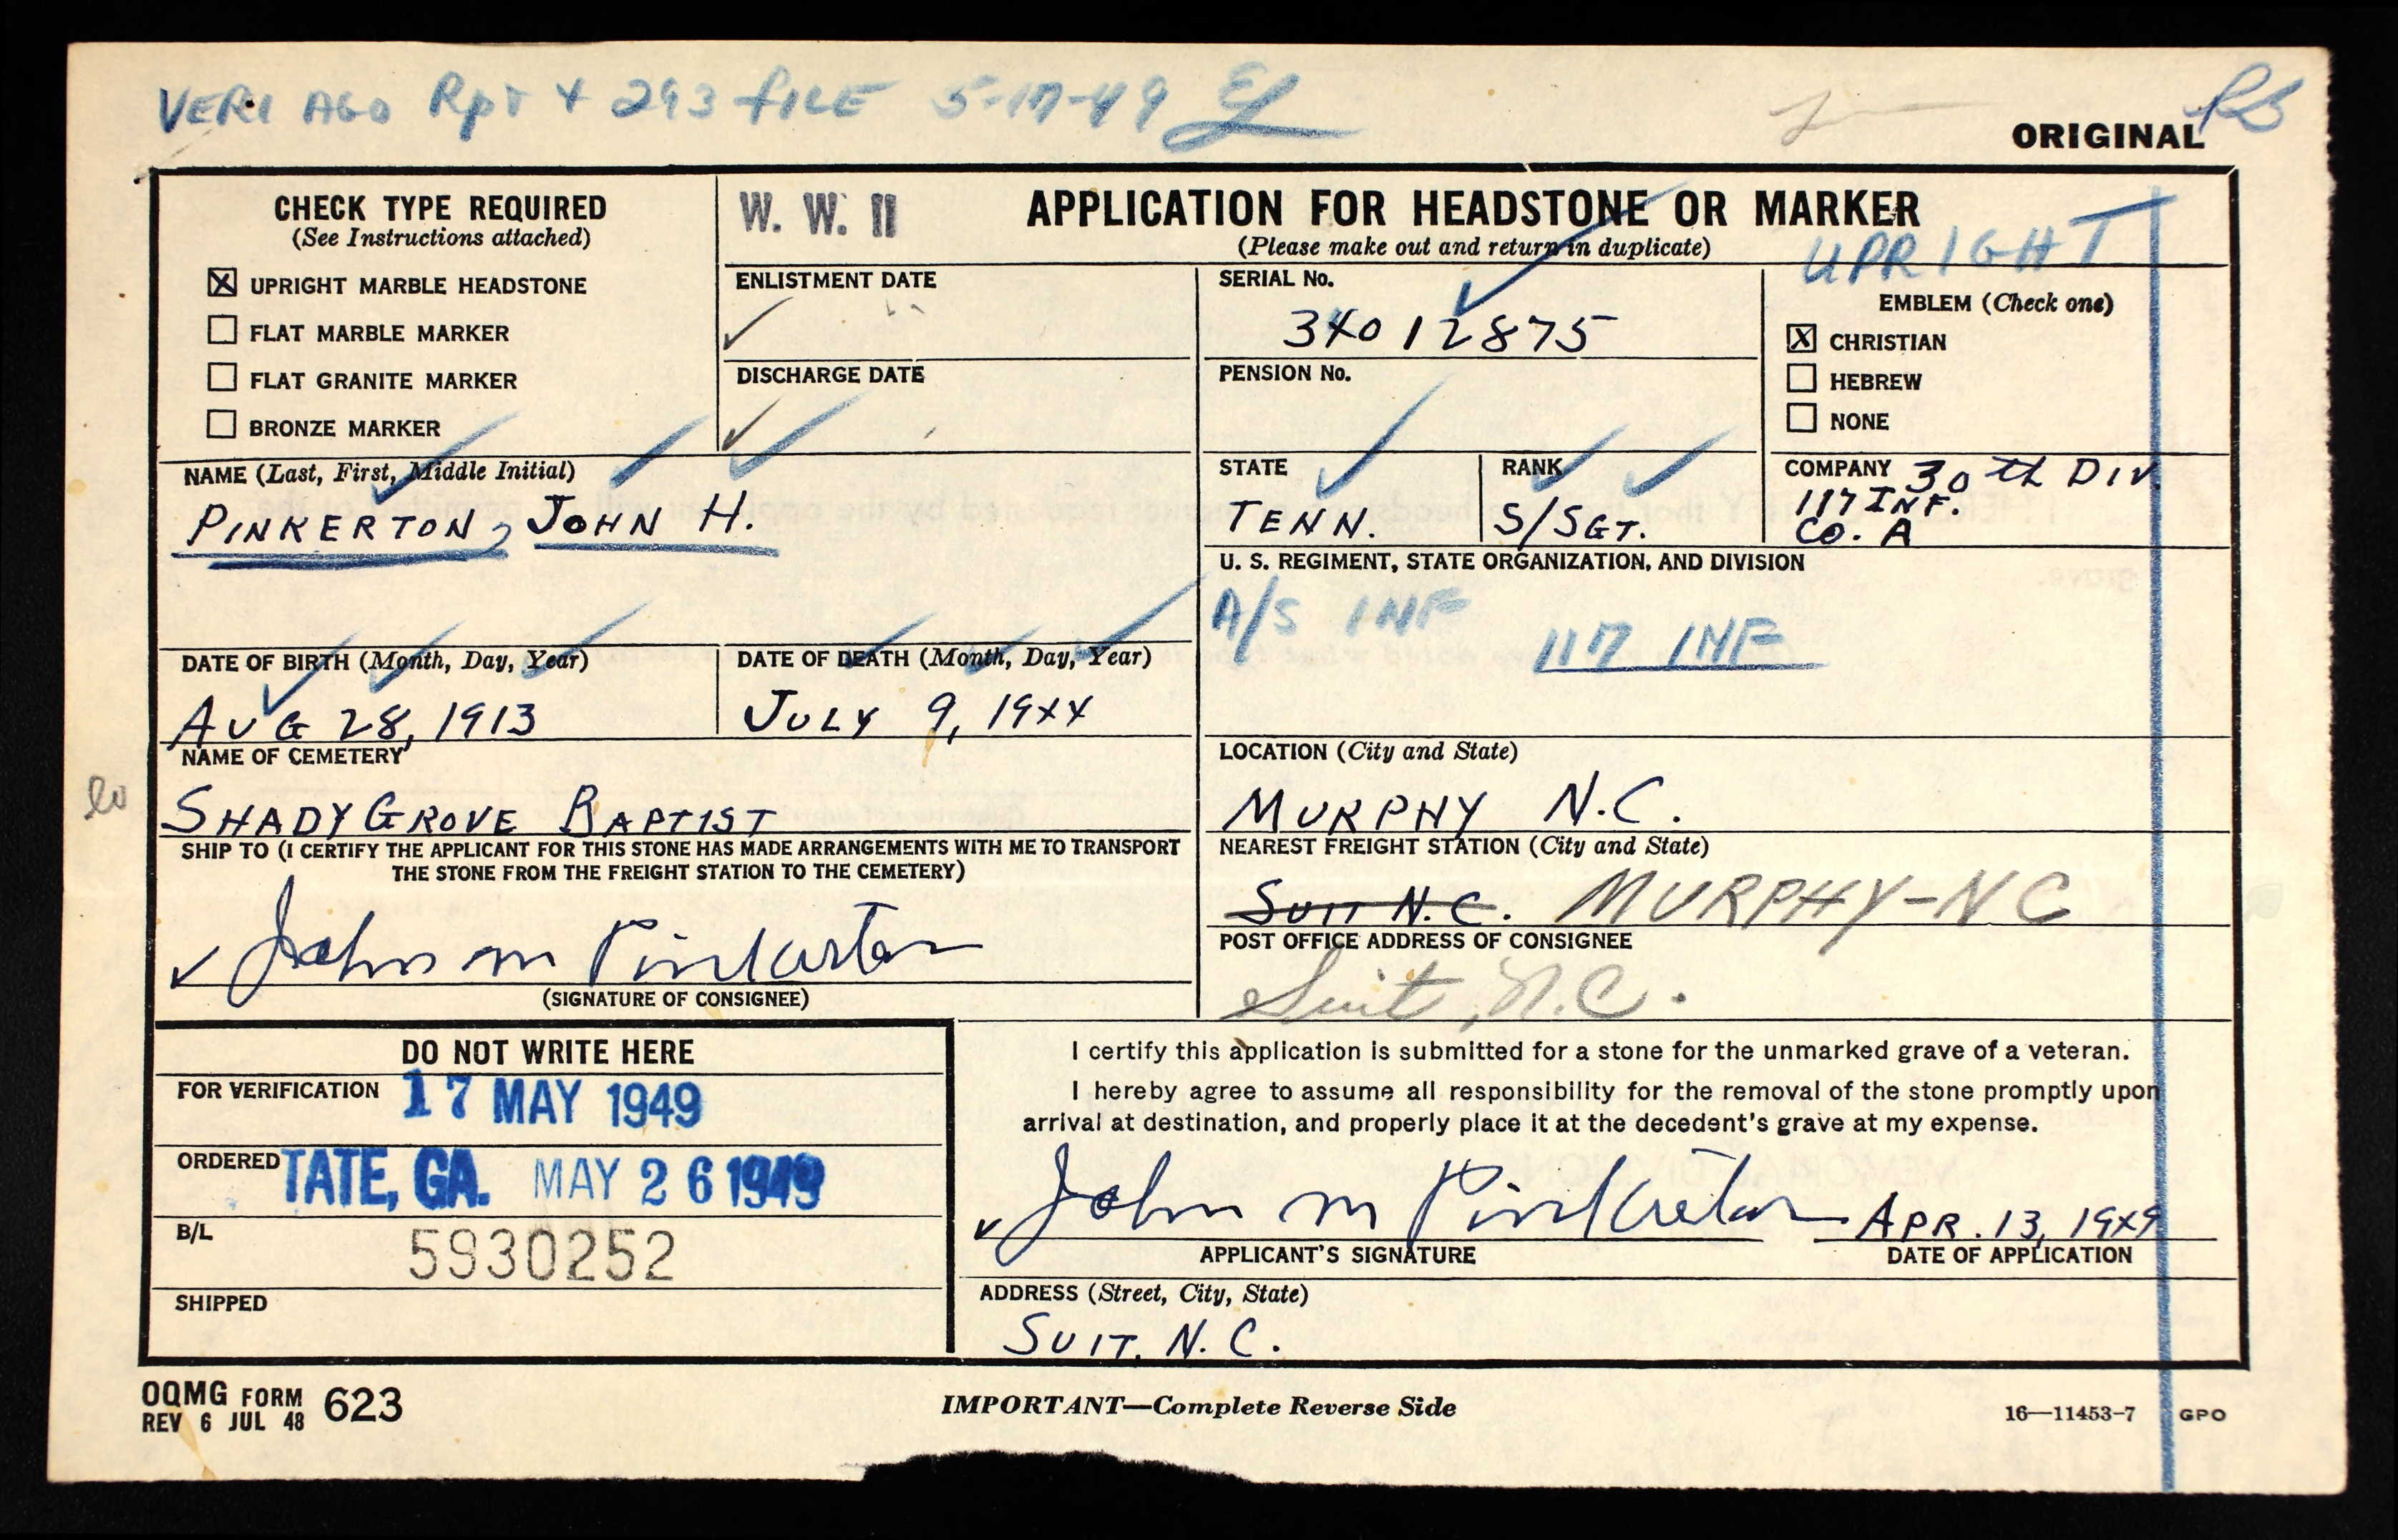 VERI AGO Rpt & 293 FILE 5-17-49
ORIGINAL RB
CHECK TYPE REQUIRED
(See Instructions attached)
☒ UPRIGHT MARBLE HEADSTONE
☐ FLAT MARBLE MARKER
☐ FLAT GRANITE MARKER
☐ BRONZE MARKER
W. W. II
APPLICATION FOR HEADSTONE OR MARKER
(Please make out and return in duplicate)
UPRIGHT
ENLISTMENT DATE
DISCHARGE DATE
SERIAL No.
34012875
PENSION No.
EMBLEM (Check one)
☒ CHRISTIAN
☐ HEBREW
☐ NONE
NAME (Last, First, Middle Initial)
PINKERTON, JOHN H.
STATE
TENN.
RANK
S/SGT.
COMPANY 30th DIV.
117 INF.
CO. A
U. S. REGIMENT, STATE ORGANIZATION, AND DIVISION
A/S INF
117 INF
DATE OF BIRTH (Month, Day, Year)
AUG 28, 1913
DATE OF DEATH (Month, Day, Year)
JULY 9, 1944
NAME OF CEMETERY
SHADY GROVE BAPTIST
LOCATION (City and State)
MURPHY N.C.
SHIP TO (I CERTIFY THE APPLICANT FOR THIS STONE HAS MADE ARRANGEMENTS WITH ME TO TRANSPORT
THE STONE FROM THE FREIGHT STATION TO THE CEMETERY)
John M Pinkerton
(SIGNATURE OF CONSIGNEE)
NEAREST FREIGHT STATION (City and State)
SUIT N.C. MURPHY-NC
POST OFFICE ADDRESS OF CONSIGNEE
Suit, N.C.
DO NOT WRITE HERE
FOR VERIFICATION 17 MAY 1949
ORDERED TATE, GA. MAY 26 1949
B/L 5930252
SHIPPED
I certify this application is submitted for a stone for the unmarked grave of a veteran.
I hereby agree to assume all responsibility for the removal of the stone promptly upon
arrival at destination, and properly place it at the decedent's grave at my expense.
John M Pinkerton APR. 13, 1949
APPLICANT'S SIGNATURE DATE OF APPLICATION
ADDRESS (Street, City, State)
SUIT. N. C.
OQMG FORM 623
REV 6 JUL 48
IMPORTANT—Complete Reverse Side
16—11453-7 GPO